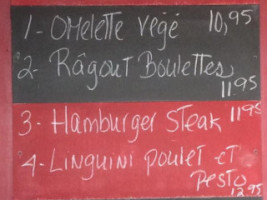 1- Omelette végé 10,95
2- Râgout Boulettes
11 95
3- Hamburger Steak 11 95
4- Linguini poulet et
Pesto
12 95